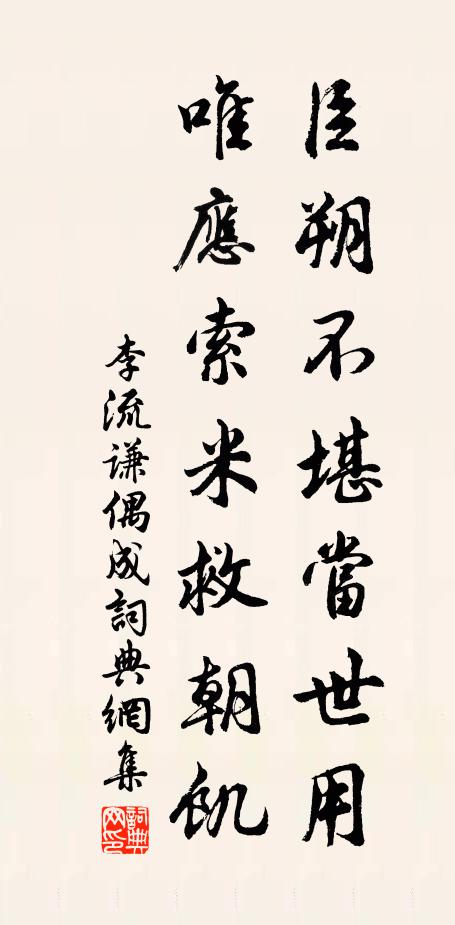 臣朔不堪當世用
唯應索米救朝飢
李流谦偶成詞典網集
詞典
网印